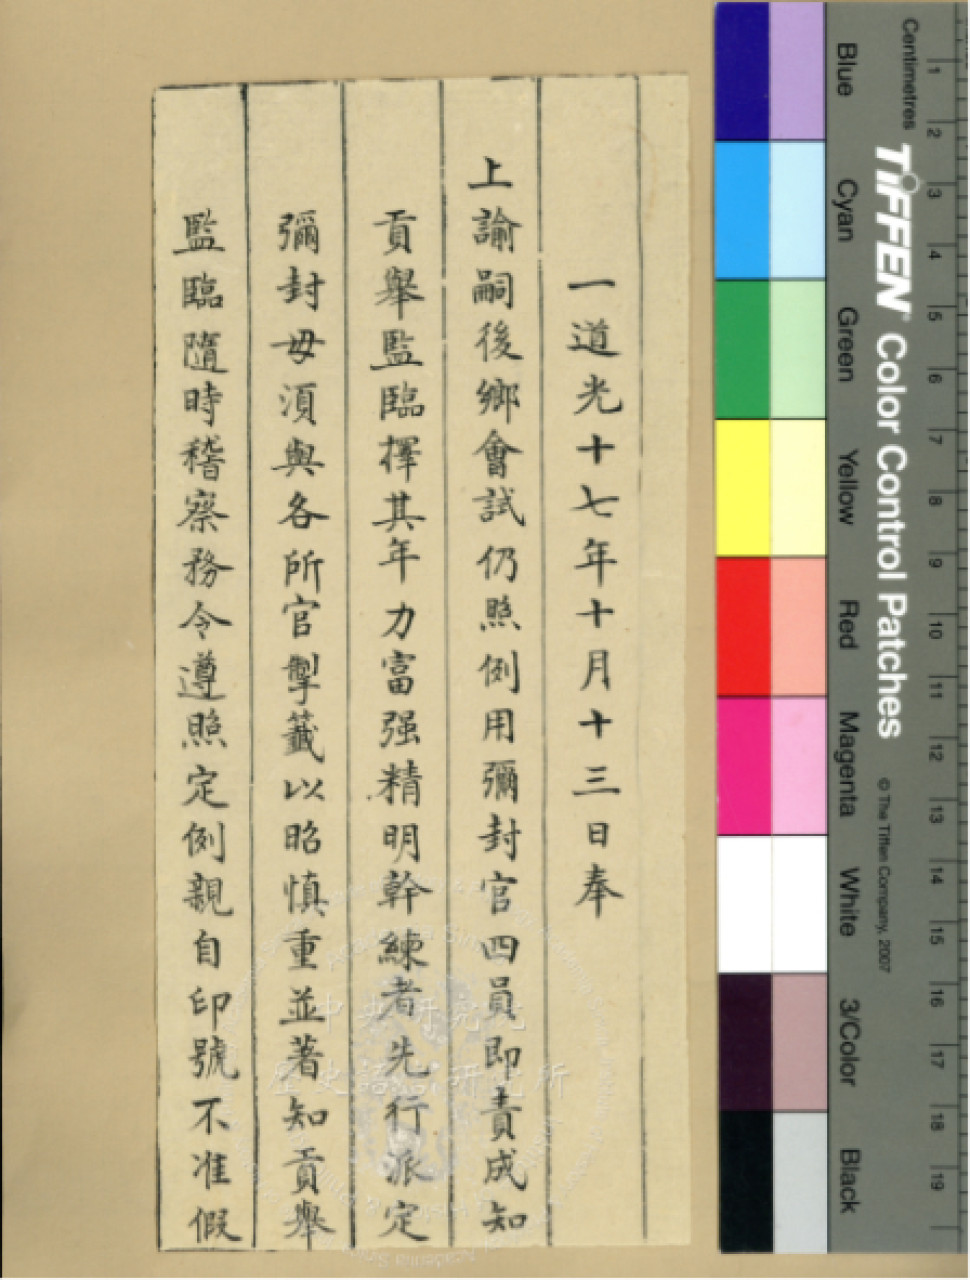 一道光十七年十月十三日奉
上諭嗣後鄉會試仍照例用彌封官四員即責成知
貢舉監臨擇其年力富强精明幹練者先行派定
彌封毋須與各所官掣籤以昭慎重並著知貢舉
監臨隨時稽察務令遵照定例親自印號不准假
中央研究院
歷史語言研究所
Centimetres
1 2 3 4 5 6 7 8 9 10 11 12 13 14 15 16 17 18 19
TIFFEN® Color Control Patches
© The Tiffen Company, 2007
Blue
Cyan
Green
Yellow
Red
Magenta
White
3/Color
Black